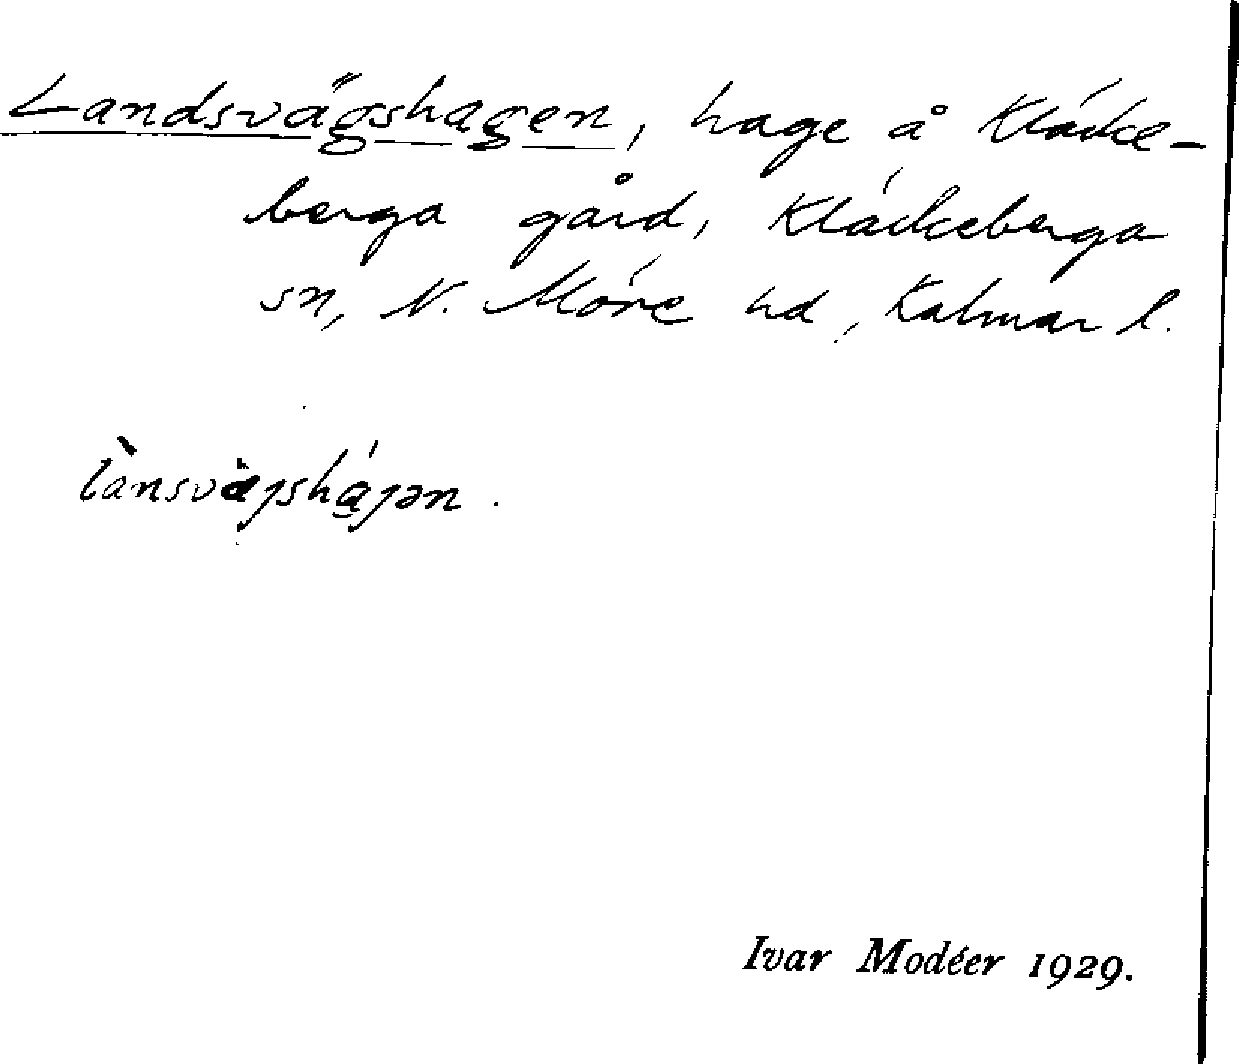 Landsvägshagen, hage å Kläcke-
berga gård, Kläckeberga
sn, N. Möre hd, Kalmar l.
lànsvàjshájən.
Ivar Modéer 1929.